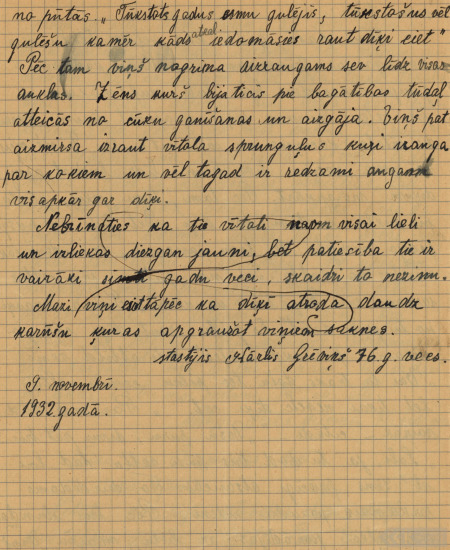 no pūtās. „Tūkstots gadus esmu gulējis, tūkstošus vēl
gulēšu kamēr kāds atkal iedomāsies raut dīķi ciet"
Pēc tam viņš nogrima aizraugams sev līdz visas
auklas. Zēns kurš bija ticis pie bagātības tūdaļ
atteicās no cūku ganīšanas un aizgāja. Viņš pat
aizmirsa izraut vītola sprunguļus kuŗi izauga
par kokiem un vēl tagad ir redzami augam
visapkār gar dīķi.
Nebrīnaties ka tie vītoli nav visai lieli
un izliekas diezgan jauni, bet patiesība tie ir
vairāki simt gadu veci, skaidri to nezinu.
Mazi viņi ir tāpēc ka dīķī atroda daudz
karūšu kuŗas apgraušot viņiem saknes.
stāstījis Kārlis 76. g. vecs.
9. novembrī.
1932 gadā.